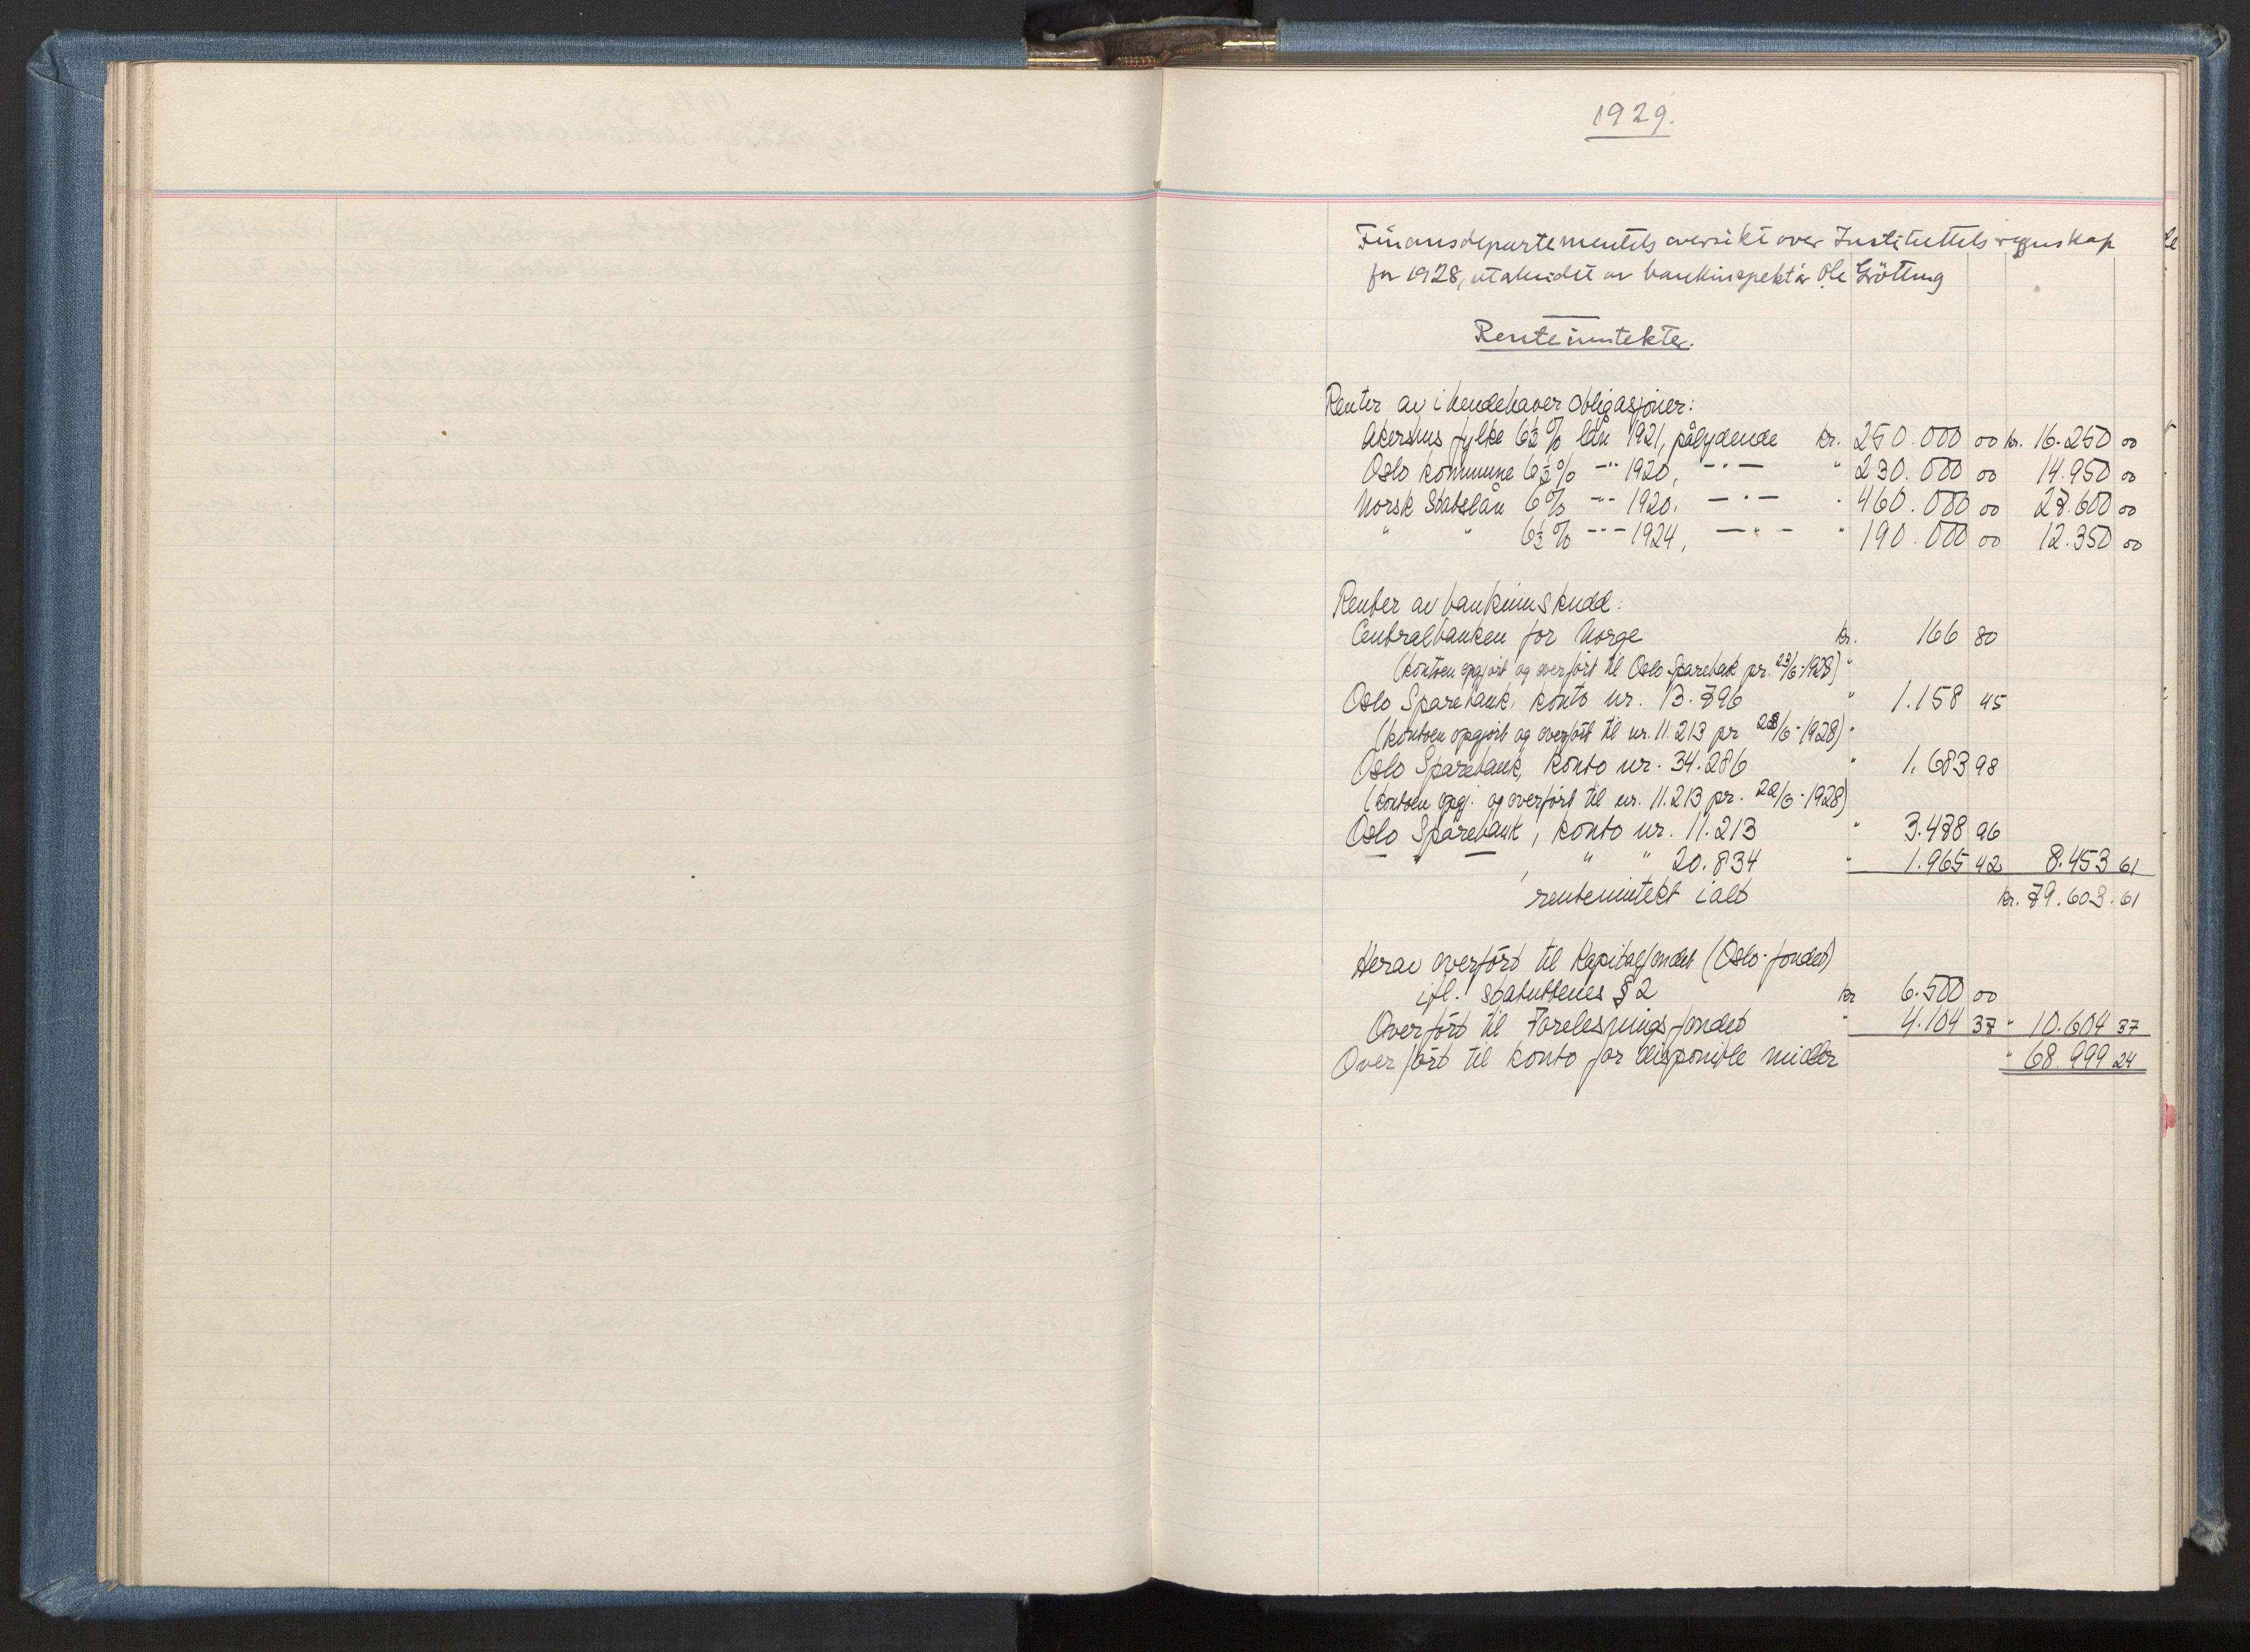 1929.
Finansdepartementets oversikt over Instituttets regnskap
for 1928, utarbeidet av bankinspektör Ole Grötting
Renteinntekter.
Renter av ihendehaver obligasjoner:
Akershus fylke 6½% lån 1921, pålydende kr. 250.000 00 kr. 16.250 00
Oslo kommune 6½% -"- 1920, -"- " 230.000 00 14.950 00
Norsk Statslån 6% -"- 1920, -"- " 460.000 00 27.600 00
" " 6½% -"- 1924, -"- " 190.000 00 12.350 00
Renter av bankinnskudd:
Centralbanken for Norge kr. 166 80
(kontoen opgjort og overført til Oslo Sparebank pr. 23/6-1928) "
Oslo Sparebank, konto nr. 13.796 " 1.158 45
(kontoen opgjort og overført til nr. 11.213 pr 28/6-1928) "
Oslo Sparebank, konto nr. 34.286 " 1.683 98
(kontoen opgj. og overført til nr. 11.213 pr. 22/6-1928)
Oslo Sparebank, konto nr. 11.213 " 3.478 96
" , " " 20.834 " 1.965 42 8.453 61
renteinntekt ialt kr. 79.603.61
Herav overført til Kapitalfondet (Oslo-fondet)
ifl. statuttenes § 2 kr 6.500 00
Overført til Forelesningsfondet " 4.104 37 " 10.604 37
Overført til konto for disponible midler " 68.999 24